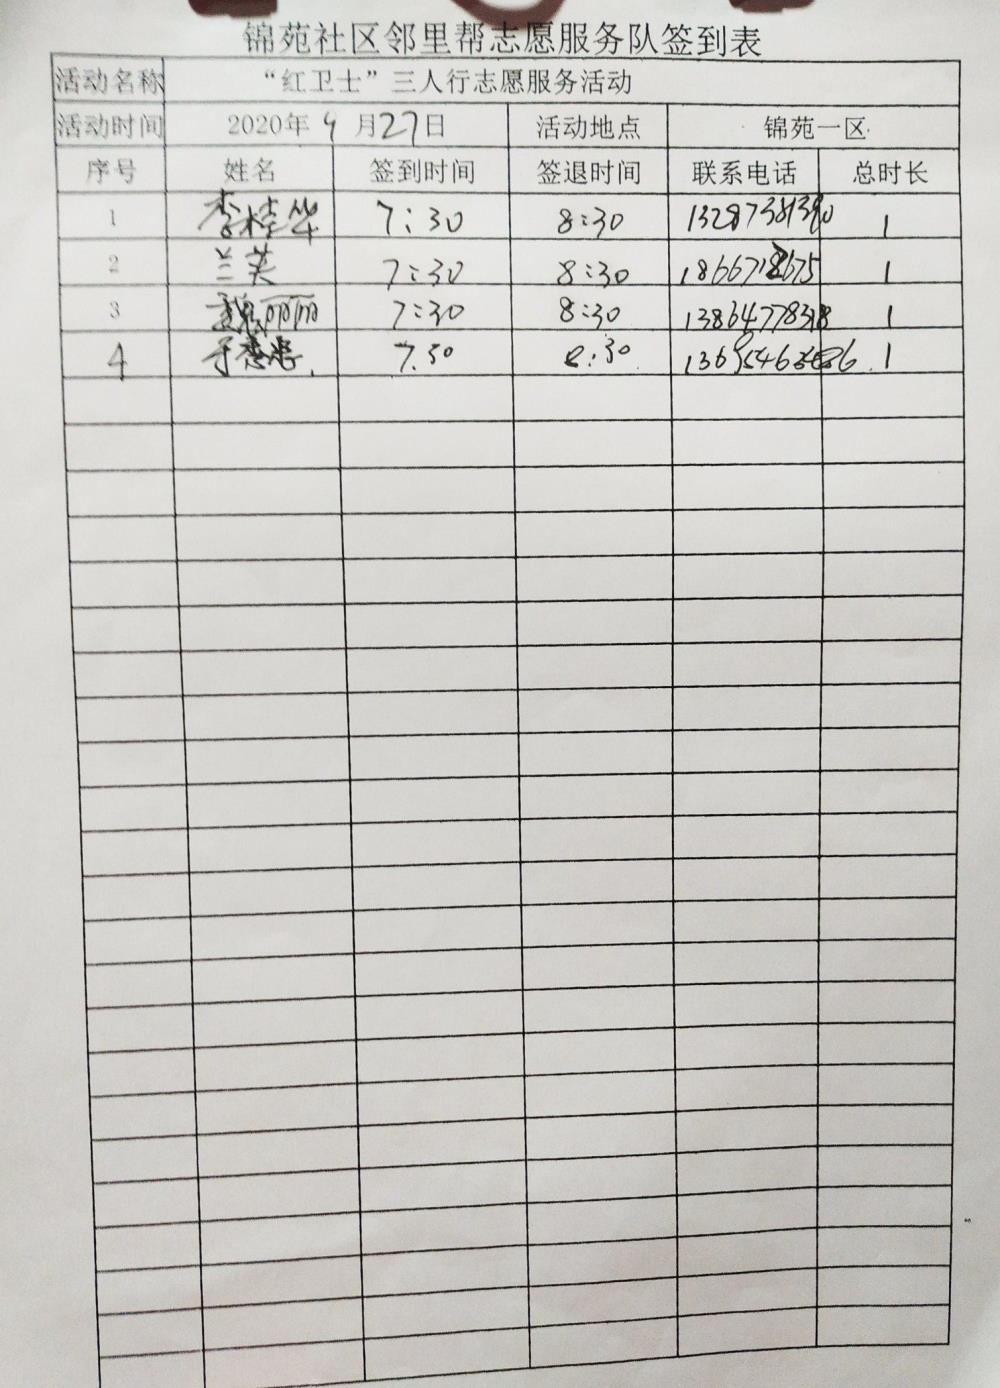 锦苑社区邻里帮志愿服务队签到表
活动名称 “红卫士”三人行志愿服务活动
活动时间 2020年4月27日 活动地点 锦苑一区
序号 姓名 签到时间 签退时间 联系电话 总时长
1 李桂华 7:30 8:30 1
2 兰芙 7:30 8:30 1
3 魏丽丽 7:30 8:30 13864778318 1
4 7.30 8:30 1